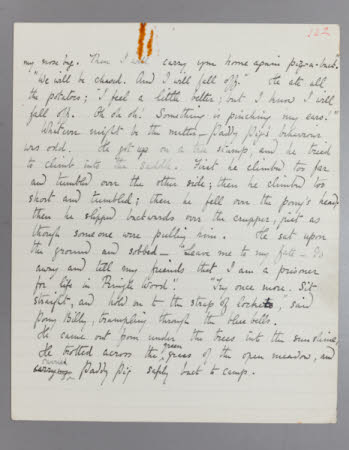 122
my nose bag. Then I will carry you home again pig-a-back."
"We will be chased. And I will fall off." He ate all
the potatoes; "I feel a little better; but I know I will
fall off. Oh oh oh. Something is pinching my ears!"
Whatever might be the matter — Paddy Pig's behaviour
was odd. He got up on a tree stump, and he tried
to climb into the saddle. First he climbed too far
and tumbled over the other side; then he climbed too
short and tumbled; then he fell over the pony's head;
then he slipped backwards over the crupper, just as
though someone were pulling him. He sat upon
the ground and sobbed — "Leave me to my fate — Go
away and tell my friends that I am a prisoner
for life in Pringle Wood". "Try once more. Sit
straight, and hold on to the strap of rockets", said
Pony Billy, trampling through the blue bells.
He came out from under the trees into the sunshine.
He trotted across the green grass of the open meadow, and
carrying carried Paddy Pig safely back to camp.